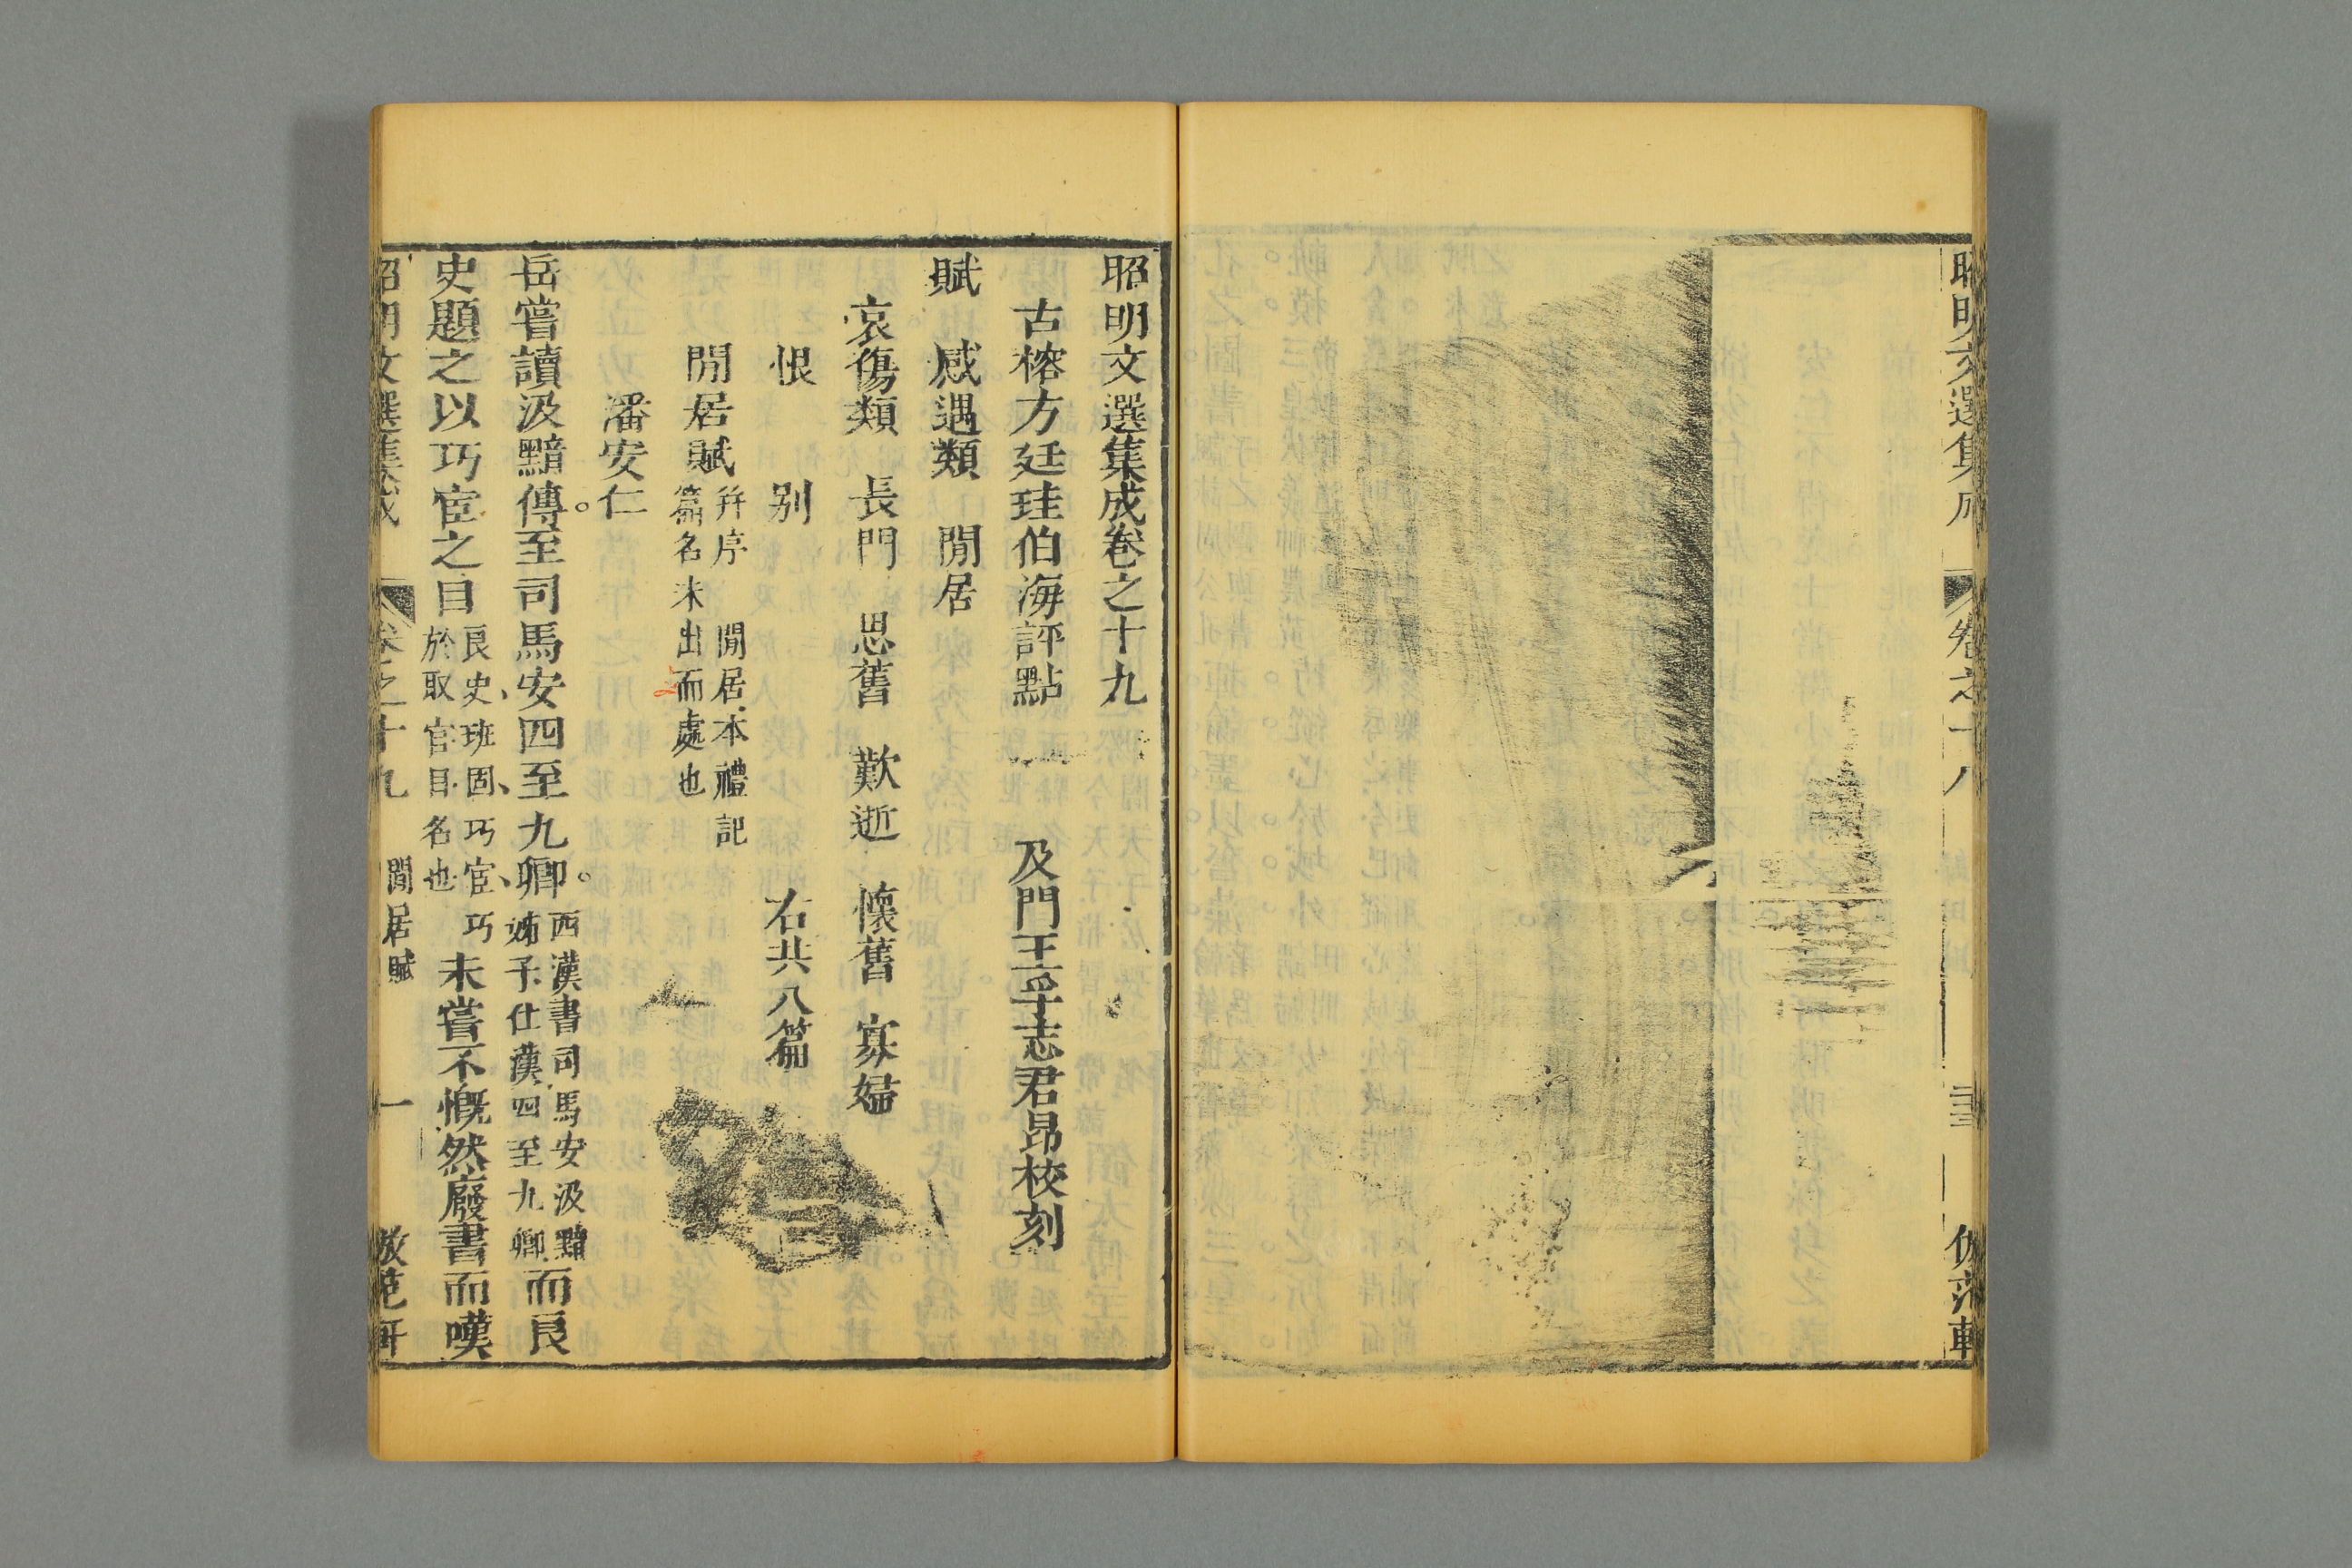 昭明文選集成
卷之十八
昭明文選集成卷之十九
古榕方廷珪伯海評點
及門王孚志君昂校刻
賦 感遇類 閒居
哀傷類 長門 思舊 歎逝 懷舊 寡婦
恨 別 右共八篇
閒居賦
并序 閒居本禮記
篇名未出而處也
潘安仁
岳嘗讀汲黯傳。至司馬安四至九卿。
西漢書司馬安汲黯
姊子仕漢四至九卿
而良
史題之以巧宦之目
良史班固巧宦巧
於取官目名也
未嘗不慨然廢書而嘆
昭明文選集成
卷之十九
閒居賦
一
倣范軒